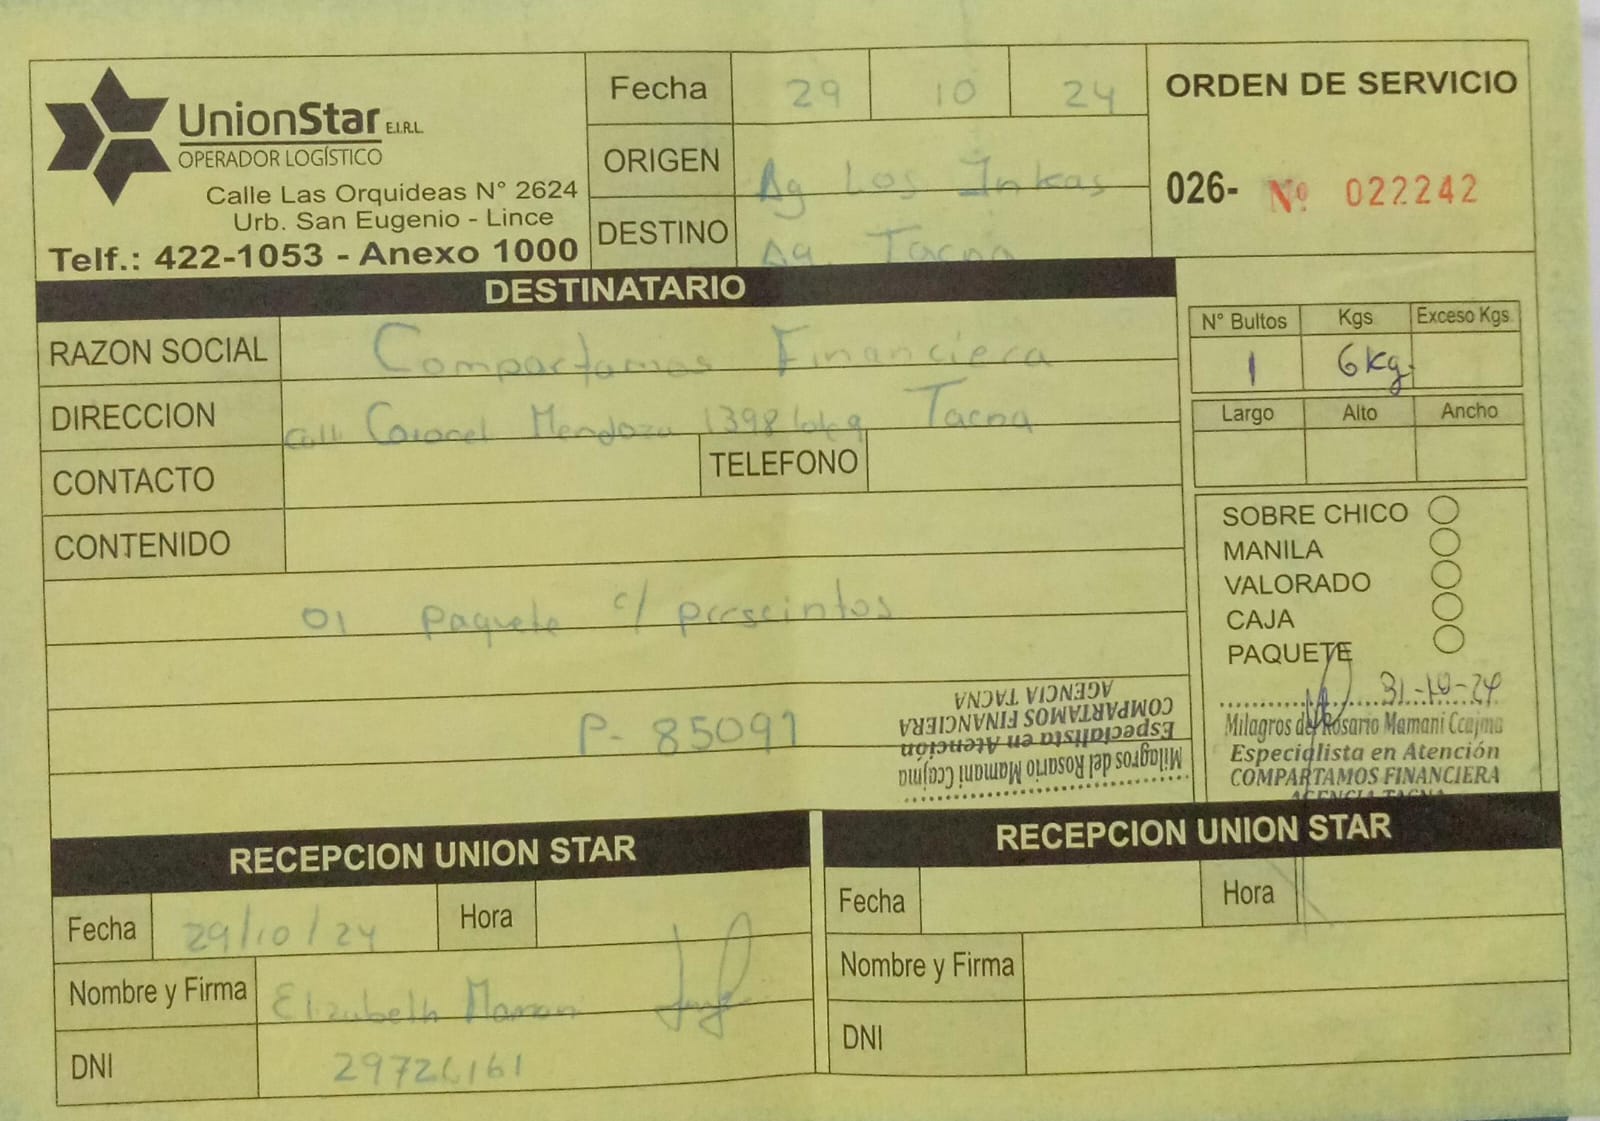 UnionStar E.I.R.L.
OPERADOR LOGÍSTICO
Calle Las Orquideas N° 2624
Urb. San Eugenio - Lince
Telf.: 422-1053 - Anexo 1000
Fecha 29 10 24
ORIGEN Ag Los Inkas
DESTINO Ag. Tacna
ORDEN DE SERVICIO
026- Nº 022242
DESTINATARIO
RAZON SOCIAL Compartamos Financiera
DIRECCION Call Coronel Mendoza 1398 Tacna
CONTACTO TELEFONO
CONTENIDO
01 paquete c/ precintos
P- 85091
Milagros del Rosario Mamani Ccajma
Especialista en Atención
COMPARTAMOS FINANCIERA
AGENCIA TACNA
N° Bultos Kgs Exceso Kgs.
1 6kg.
Largo Alto Ancho
SOBRE CHICO
MANILA
VALORADO
CAJA
PAQUETE
31-10-24
Milagros del Rosario Mamani Ccajma
Especialista en Atención
COMPARTAMOS FINANCIERA
AGENCIA TACNA
RECEPCION UNION STAR
Fecha 29/10/24 Hora
Nombre y Firma Elizabeth Mamani
DNI
RECEPCION UNION STAR
Fecha Hora
Nombre y Firma
DNI